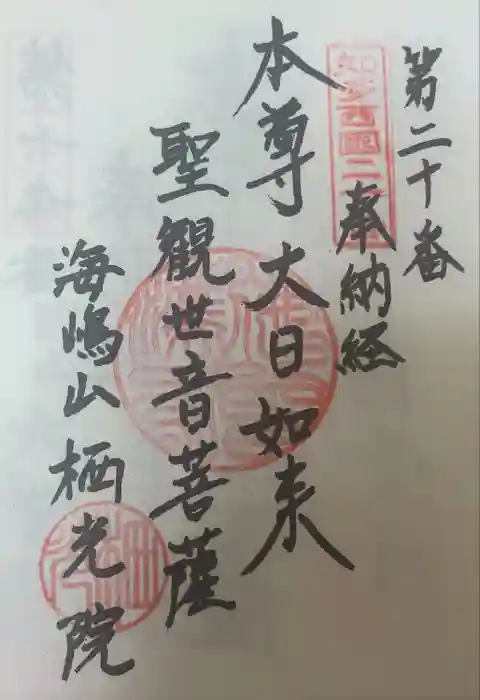 第二十番
奉納経
知多西国二
本尊 大日如来
聖観世音菩薩
海嶋山 栖光院